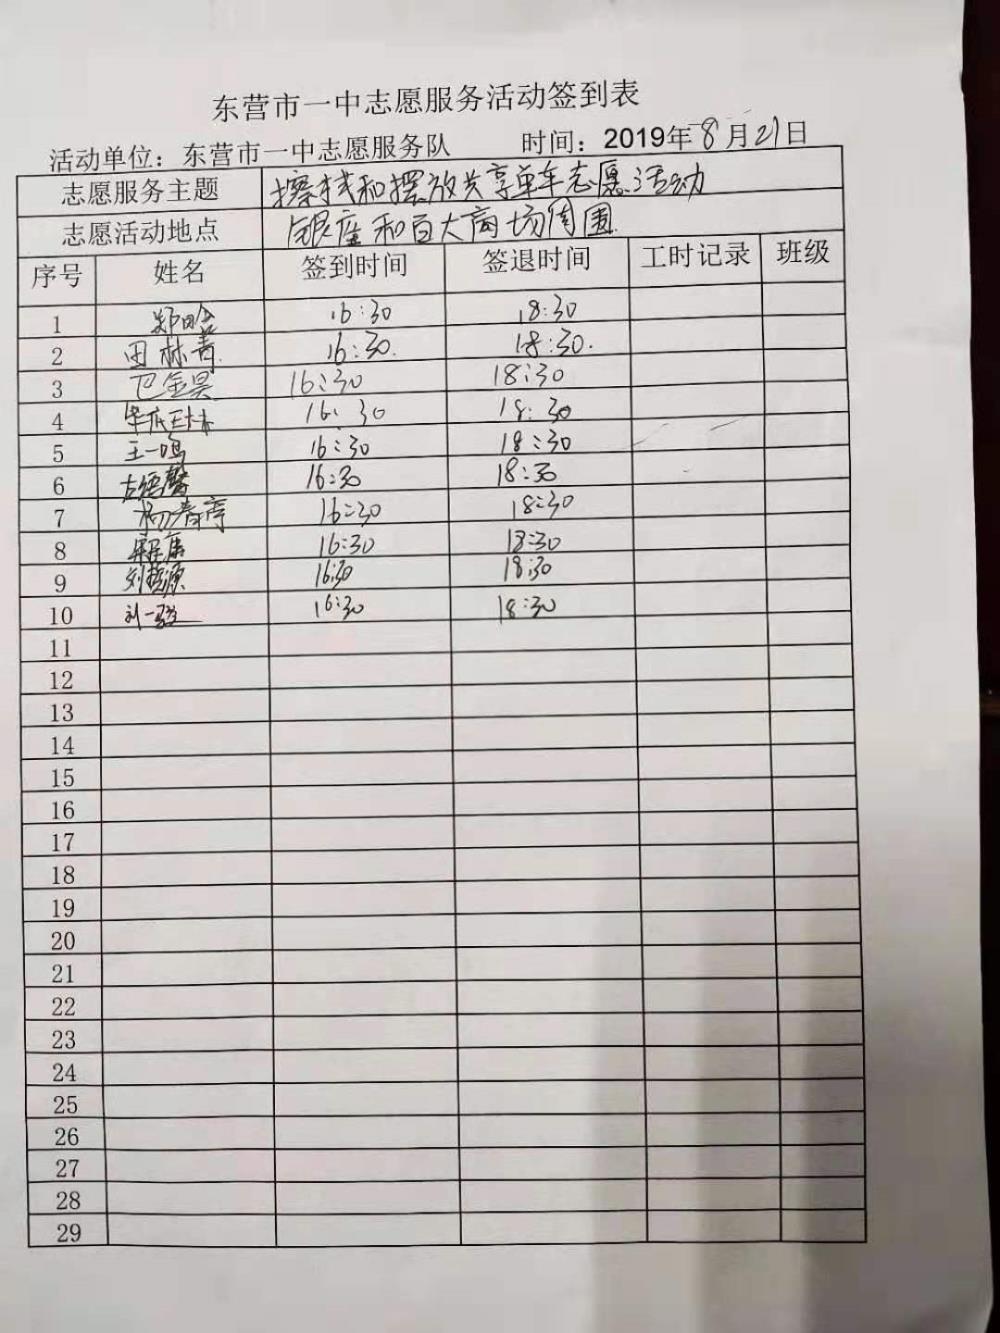 东营市一中志愿服务活动签到表
活动单位：东营市一中志愿服务队 时间：2019年8月21日
志愿服务主题 擦拭和摆放共享单车志愿活动
志愿活动地点 银座和百大商场周围
序号 姓名 签到时间 签退时间 工时记录 班级
1 郑晗 16:30 18:30
2 田林青 16:30. 18:30.
3 巴金昊 16:30 18:30
4 16:30 18:30
5 王一鸣 16:30 18:30
6 16:30 18:30
7 杨春亭 16:30 18:30
8 16:30 18:30
9 刘哲源 16:30 18:30
10 刘一 16:30 18:30
11
12
13
14
15
16
17
18
19
20
21
22
23
24
25
26
27
28
29